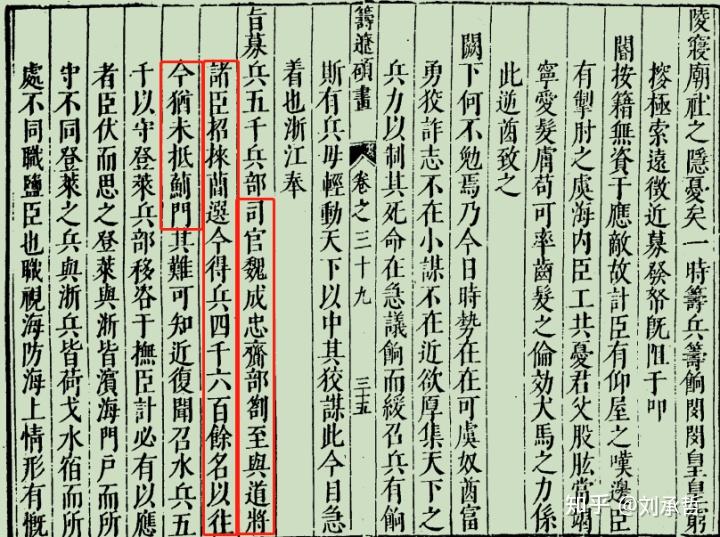 陵寢廟社之隱憂矣一時籌兵籌餉閔閔皇皇廟
榕極索遠徵近募發帑旣阻于叩
閽按籍無資于應敵故計臣有仰屋之嘆邊臣
有掣肘之虞海內臣工共憂君父股肱當竭
寧愛髮膚苟可率齒髮之倫効犬馬之力係
此逆酋致之
闕下何不勉焉乃今日時勢在在可虞奴酋富
勇狡詐志不在小謀不在近欲厚集天下之
兵力以制其死命在急議餉而緩召兵有餉
斯有兵毋輕動天下以中其狡謀此今目急
籌遼碩畫
卷之三十九
三十五
着也浙江奉
旨募兵五千兵部司官魏成忠齎部劄至與道將
諸臣招捸蕳選今得兵四千六百餘名以往
今猶未抵薊門其難可知近復聞召水兵五
千以守登萊兵部移咨于撫臣計必有以應
者臣伏而思之登萊與浙皆濱海門戶而所
守不同登萊之兵與浙兵皆荷戈水宿而所
處不同職鹽臣也職視海防海上情形有慨
知乎 @刘承哲